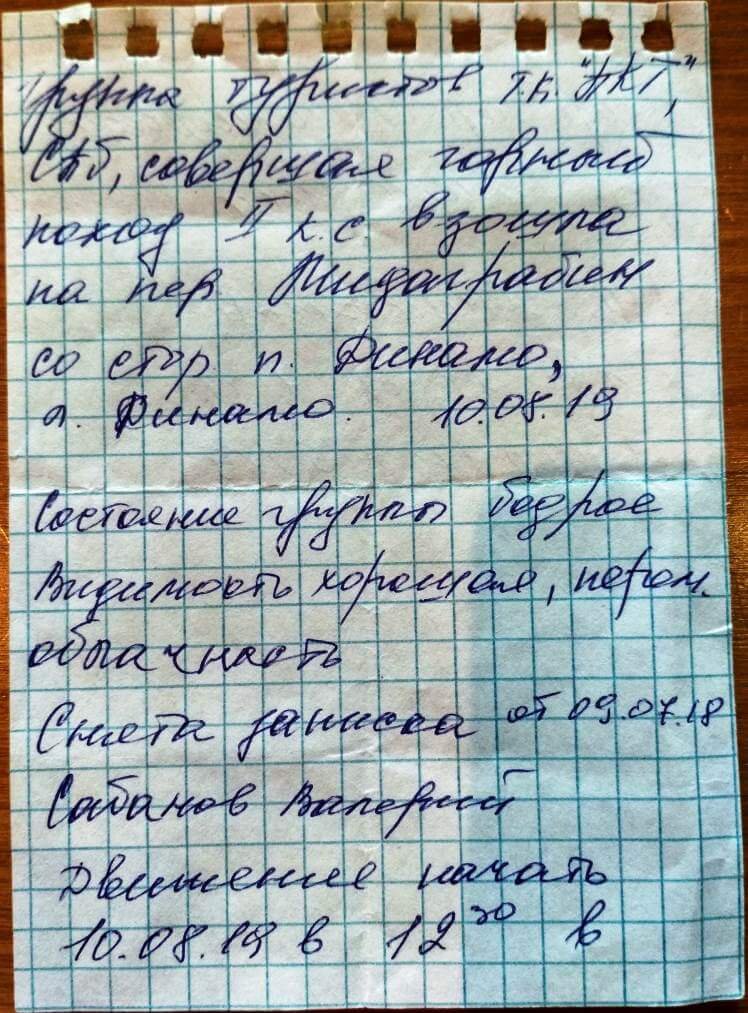 Группа туристов т.к. "ПКТ",
СПб, совершая горный
поход II к.с. взошла
на пер Пидаграбин
со стор п. Динамо,
л. Динамо. 10.08.19
Состояние группы бодрое
Видимость хорошая, перем.
облачность
Снята записка от 09.07.18
Сабанов Валерий
Движение начать
10.08.19 в 12 30 в